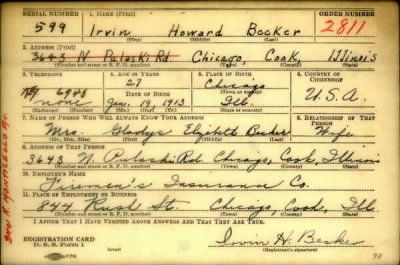 SERIAL NUMBER 1. NAME (Print) ORDER NUMBER
599 Irvin Howard Becker 2811
(First) (Middle) (Last)
2. ADDRESS (Print)
3643 N Pulaski Rd Chicago, Cook, Illinois
(Number and street or R. F. D. number) (Town) (County) (State)
3. TELEPHONE 4. AGE IN YEARS 5. PLACE OF BIRTH 6. COUNTRY OF CITIZENSHIP
27 Chicago
6948 DATE OF BIRTH (Town or county)
none Jan. 19, 1913 Ill. U.S.A.
(Mo.) (Day) (Yr.) (State or country)
7. NAME OF PERSON WHO WILL ALWAYS KNOW YOUR ADDRESS 8. RELATIONSHIP OF THAT PERSON
Mrs. Gladys Elizabeth Becker Wife
(Mr., Mrs., Miss) (First) (Middle) (Last)
9. ADDRESS OF THAT PERSON
3643 N. Pulaski Rd Chicago, Cook, Illinois
(Number and street or R. F. D. number) (Town) (County) (State)
10. EMPLOYER'S NAME
Firemen's Insurance Co.
11. PLACE OF EMPLOYMENT OR BUSINESS
844 Rush St. Chicago, Cook, Ill.
(Number and street or R. F. D. number) (Town) (County) (State)
I AFFIRM THAT I HAVE VERIFIED ABOVE ANSWERS AND THAT THEY ARE TRUE.
REGISTRATION CARD
D. S. S. Form 1 Irvin H. Becker
(Registrant's signature)